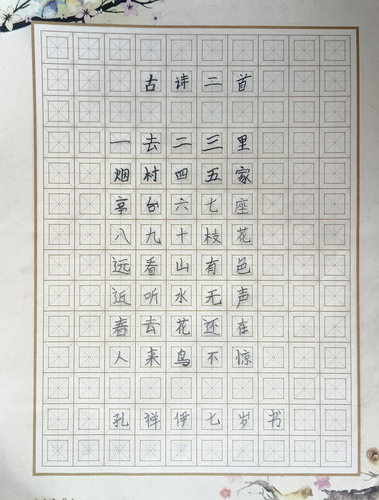 古诗二首
一去二三里
烟村四五家
亭台六七座
八九十枝花
远看山有色
近听水无声
春去花还在
人来鸟不惊
孔祥伊七岁书